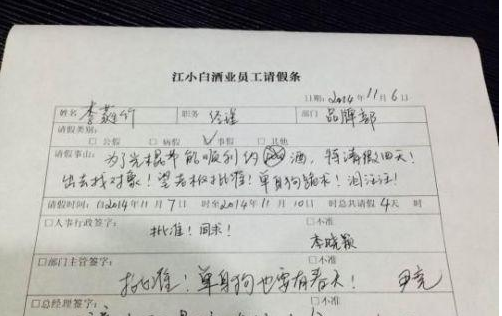 江小白酒业员工请假条
日期：2014年11月6日
姓名 李 竹 职务 经理 部门 品牌部
请假类别：
□ 公假 □ 病假 ✓事假 □ 其他
请假事由：为了光棍节能顺利约 酒，特请假四天！
出去找对象！望老板批准！单身狗 ！泪汪汪！
请假时间：自2014年11月7日 时至2014年11月10日 时总共请假4天 时
□人事行政签字： □不准
批准！同求！ 李晓颖
□部门主管签字： □不准
批准！单身狗也要有春天！
□总经理签字： □不准